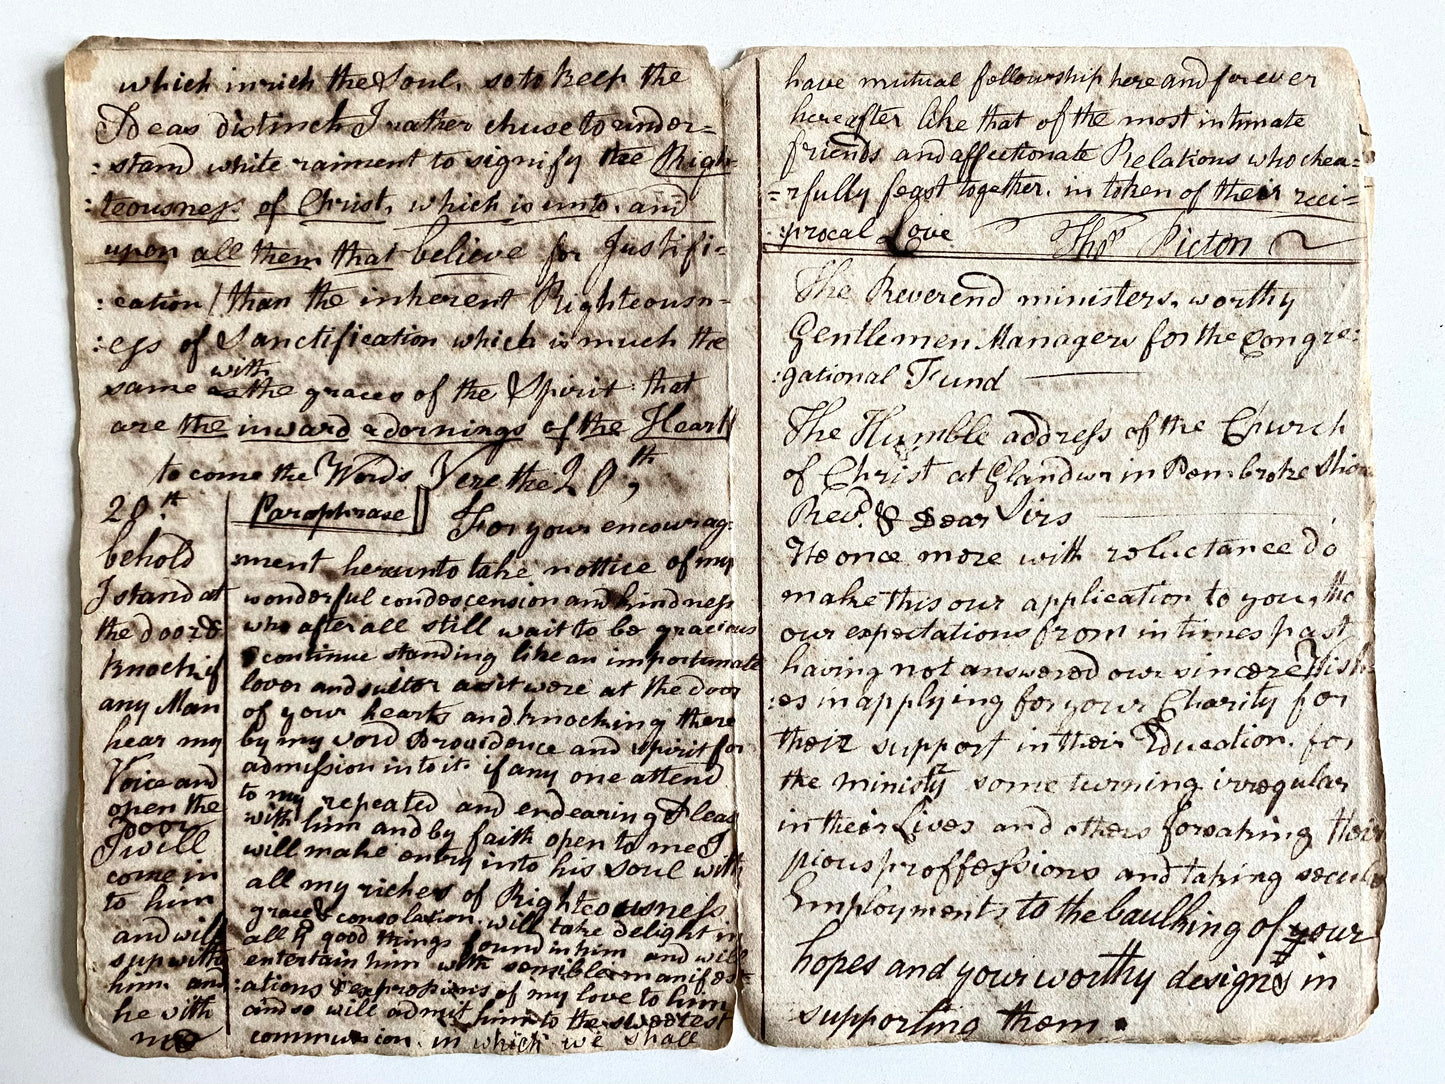 which inrich the Soul, so to keep the
Ideas distinct I rather chuse to under=
:stand white raiment to signify the Righ-
teousness of Christ, which is unto, and
upon all them that believe for Justifi-
:cation / than the inherent Righteousn-
:ess of Sanctification which is much the
same with the graces of the Spirit that
are the inward adornings of the Heart
to come the Words Vere the 20th,
20th
behold
I stand at
the door &
knock if
any Man
hear my
Voice and
open the
Door
I will
come in
to him
and will
sup with
him and
he with
me
Paraphrase
For your encourag-
ment hereunto take nottice of my
wonderful condescension and kindness
who after all still wait to be gracious
& continue standing like an importunate
lover and suitor as it were at the door
of your hearts and knocking there
by my word Providence and spirit for
admission into it. if any one attend
to my repeated and endearing Pleas
with him and by faith open to me I
will make entry into his soul with
all my riches of Righteousness
grace & consolation, will take delight in
all ye good things found in him and will
entertain him with sensible manifest-
:ations & expressions of my love to him
and so will admit him to the sweetest
communion. in which we shall
have mutual fellowship here and forever
hereafter like that of the most intimate
friends and affectionate Relations who chea=
=rfully feast together. in token of their reci-
:procal Love Thos Picton
The Reverend ministers, worthy
Gentlemen Managers for the Congre:
:gational Fund
The Humble address of the Church
of Christ at Glandwr in Pembroke Shire
Revd. & Dear Sirs
We once more with reluctance do
make this our application to you, tho
our expectations from in times past
having not answered our sincere Wish-
:es in applying for your Charity for
their support in their Education. for
the ministry some turning irregular
in their Lives and others forsaking their
pious proffessions and taking secular
Employments to the baulking of your
hopes and your worthy designs in
supporting them.